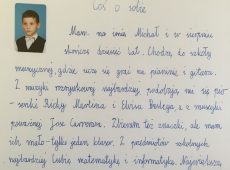 Coś o sobie
Mam na imię Michał i w sierpniu
skończę dziewięć lat. Chodzę do szkoły
muzycznej, gdzie uczę się grać na pianinie i gitarze.
Z muzyki rozrywkowej najbardziej podobają mi się pio-
senki Ricky Martina i Elvisa Presleya, a z muzyki
poważnej Jose Carrerasa. Zbieram też znaczki, ale mam
ich mało - tylko jeden klaser. Z przedmiotów szkolnych
najbardziej lubię matematykę i informatykę. Najwiekszą